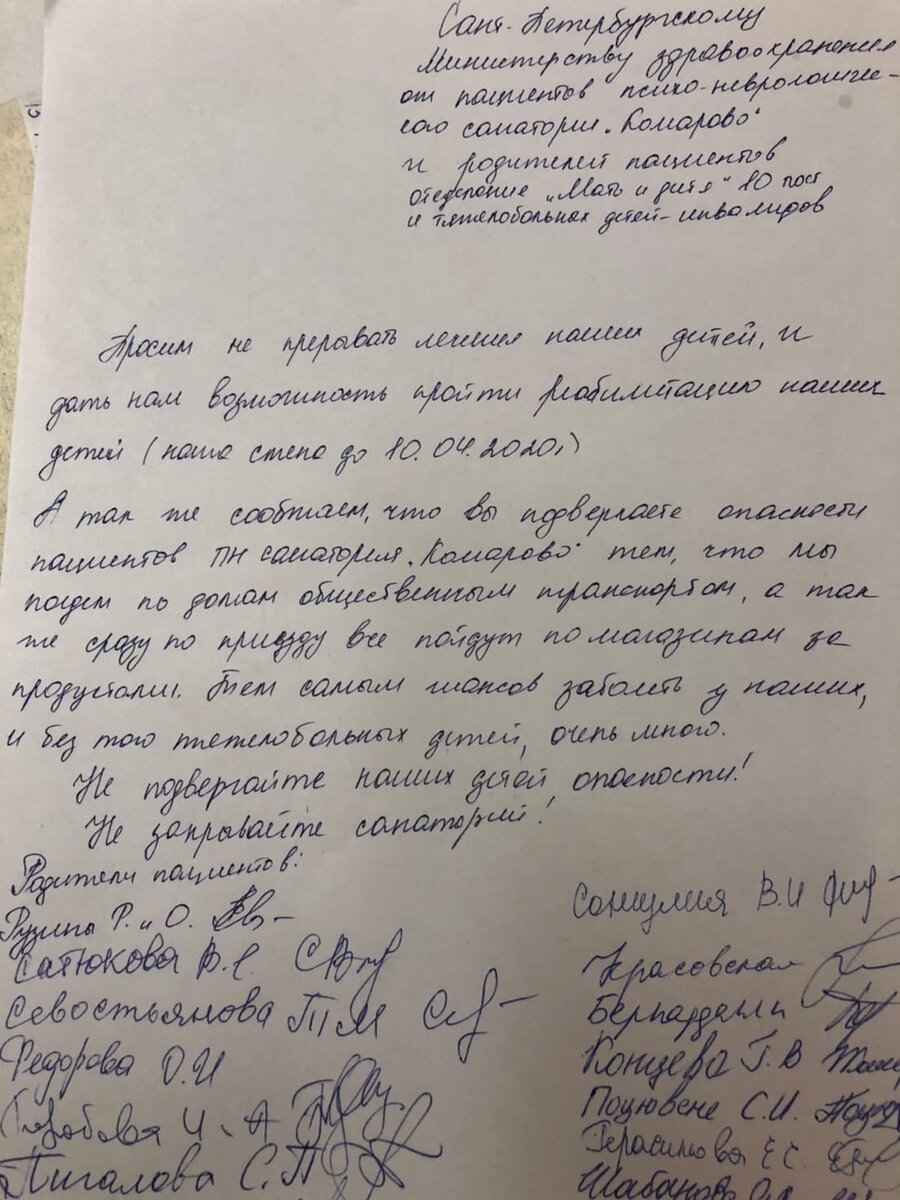 Сант-Петербургскому
Министерству здравоохранения
от пациентов психо-неврологиче-
ского санатория „Комарово"
и родителей пациентов
отделение „Мать и дитя" 10 пост
и тяжелобольных детей-инвалидов
Просим не прерывать лечение наших детей, и
дать нам возможность пройти реабилитацию наших
детей (наша смена до 10.04.2020г)
А так же сообщаем, что вы подвергаете опасности
пациентов ПН санатория „Комарово" тем, что мы
поедем по домам общественным транспортом, а так
же сразу по приезду все пойдут по магазинам за
продуктами. Тем самым шансов заболеть у наших,
и без того тяжелобольных детей, очень много.
Не подвергайте наших детей опасности!
Не закрывайте санаторий!
Родители пациентов:
Рузины Р. и О.
Сатюкова В.Е.
Севостьянова Т М
Федорова О.И
И. А
Пигалова С.П
В.И
Красовская
Концева Г.В
Поцювене С.И.
Герасимова Е С.
Шабанова О.